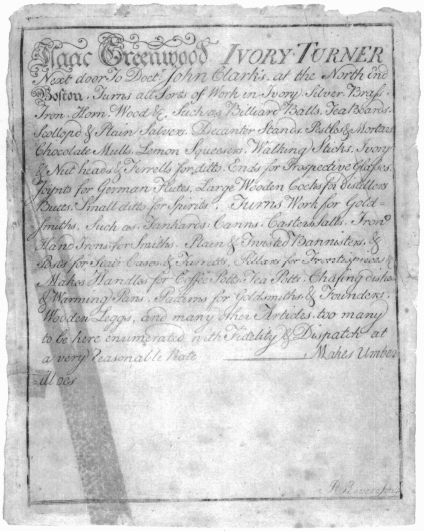 Isaac Greenwood IVORY TURNER
Next door to Doct.r John Clark's, at the North End
Boston, Turns all Sorts of Work in Ivory, Silver, Brass,
Iron, Horn, Wood &c, Such as Billiard Balls, Tea Boards,
Scollop'd & Plain Salvers, Decanter Stands, Pestles & Mortars
Chocolate Mulls, Lemon Squeesers, Walking Sticks, Ivory
& Nut heads & Ferrells for ditto, Ends for Prospective Glasses,
Joynts for German Flutes, Large Wooden Cocks for distillers
Butts, Small ditto for Spirits. Turns Work for Gold-
smiths, Such as, Tankards, Canns, Casters, Salts, Iron
Mand Irons for Smiths. Plain & Twisted Bannisters, &
Posts for Stair Cases & Turretts, Pillars for Frontispieces, &
Makes Handles for Coffee Potts, Tea Potts, Chafing dishes
& Warming Pans, Patterns for Goldsmiths & Founders,
Wooden Leggs, and many other Articles, too many
to be here enumerated, with Fidelity & Dispatch at
a very Reasonable Rate Makes Umbre
lloes
P. Revere